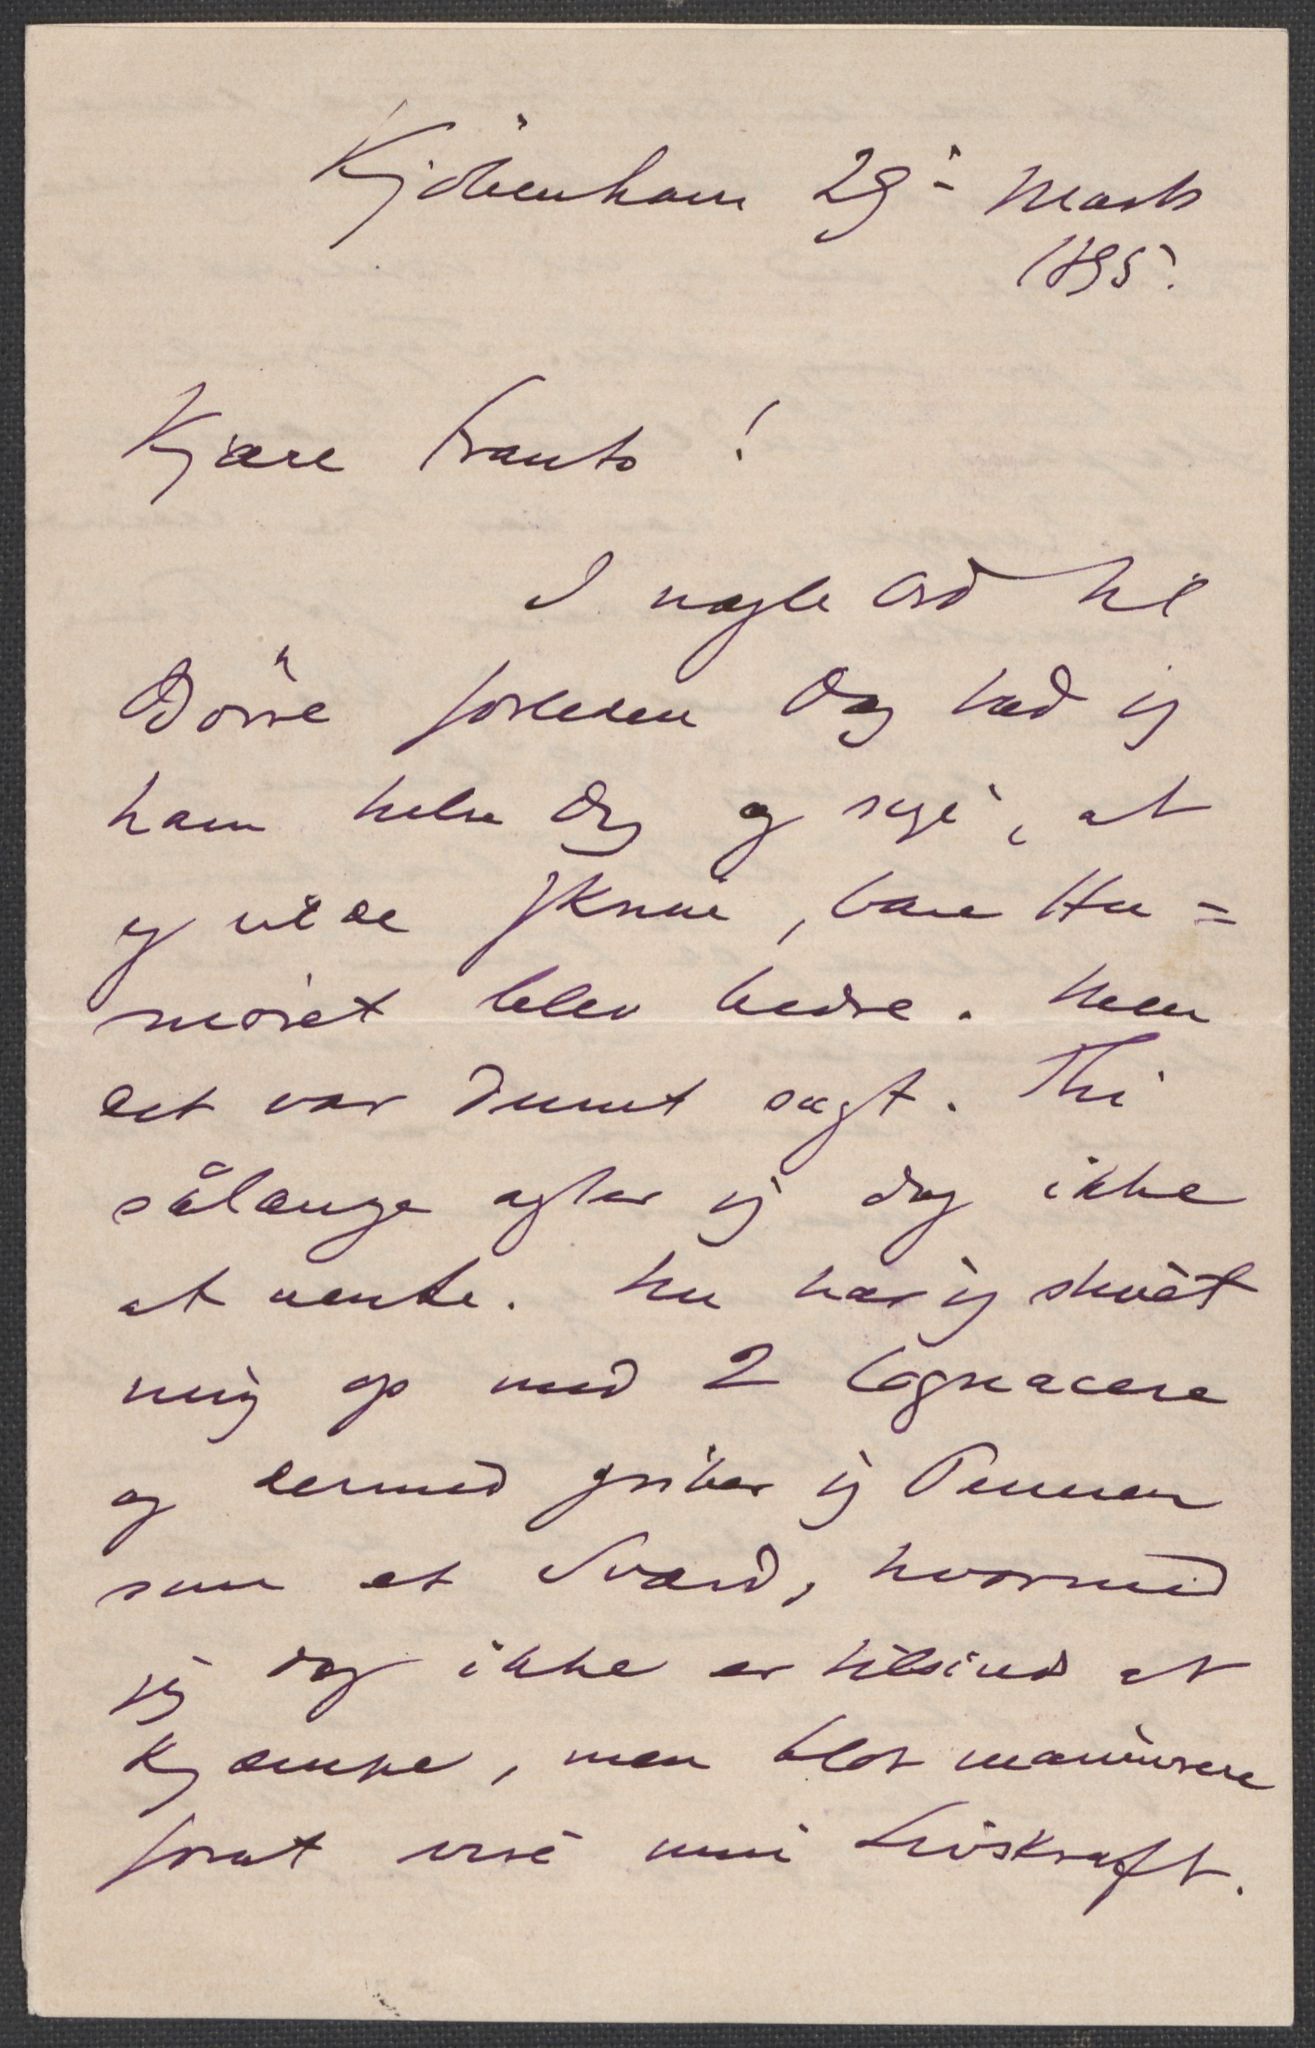 Kjöbenhavn 29de Marts
1895.
Kjære Frants!
I nogle Ord til
Börre forleden Dag bad jeg
ham hilse Dig og sige, at
jeg vilde skrive, bare Hu=
möret blev bedre. Men
det var dumt sagt. Thi
sålænge agter jeg dog ikke
at vente. Nu har jeg skruet
mig op med 2 Cognacere
og dermed griber jeg Pennen
som et Sværd, hvormed
jeg dog ikke er tilsinds at
kjæmpe, men blot manövrere
forat vise min Livskraft.